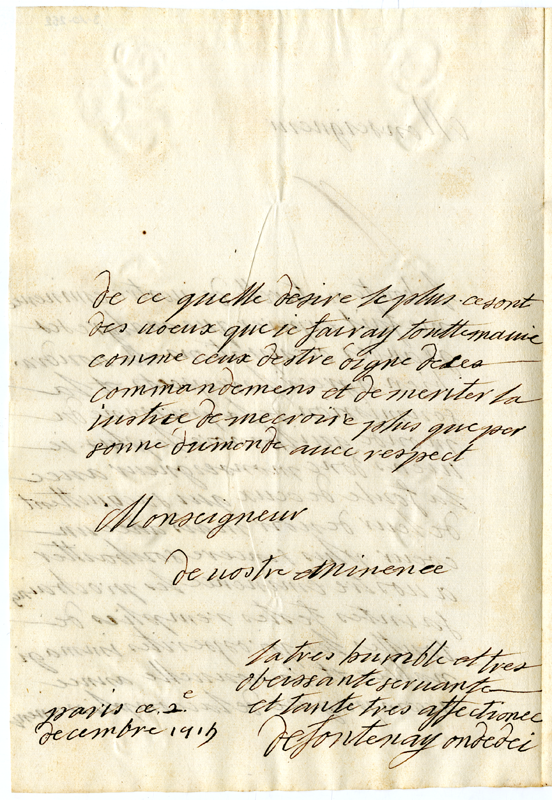 de ce quelle desire le plus ce sont
des uoeux que ie fairay toutte mauie
comme ceux destre digne deses
commandemens et de meriter la
iustice de mecroire plus que per
sonne dumonde auec respect
Monseigneur
de uostre eminence
la tres humble et tres
obeissante seruante
et tante tres affectionee
de fontenay ondedei
paris ce 2e
decembre